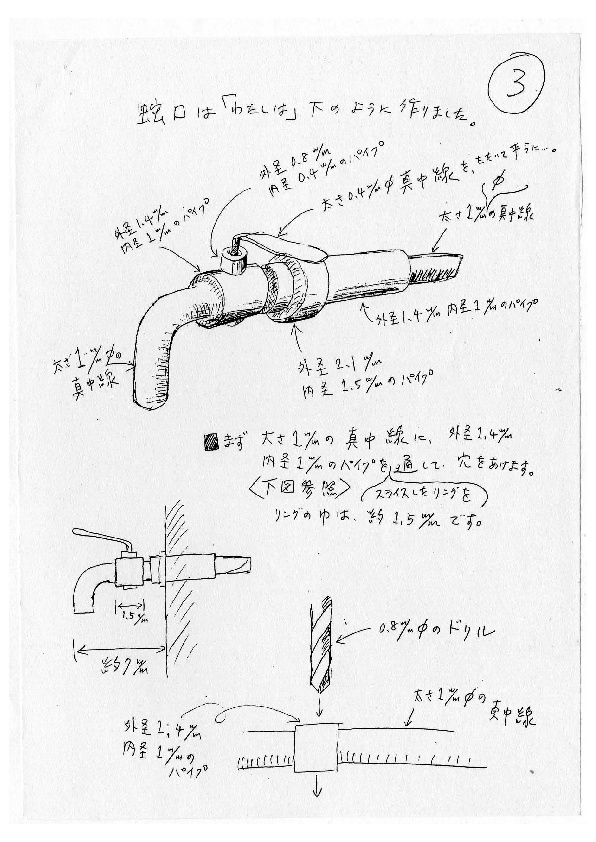 3
蛇口は「わたしは」下のように作りました。
外径0.8m/m
内径0.4m/mのパイプ
太さ0.4m/mφ真中線を、たたいて平らに…。
φ
太さ1m/mの真中線
外径1.4m/m
内径1m/mのパイプ
外径1.4m/m 内径1m/mのパイプ
太さ1m/mφの
真中線
外径2.1m/m
内径1.5m/mのパイプ
■まず 太さ1m/mの真中線に、外径1.4m/m
内径1m/mのパイプを通して、穴をあけます。
〈下図参照〉
スライスしたリングを
リングの巾は、約1.5m/mです。
1.5m/m
約7m/m
0.8m/mφのドリル
太さ1m/mφの
真中線
外径1.4m/m
内径1m/mの
パイプ